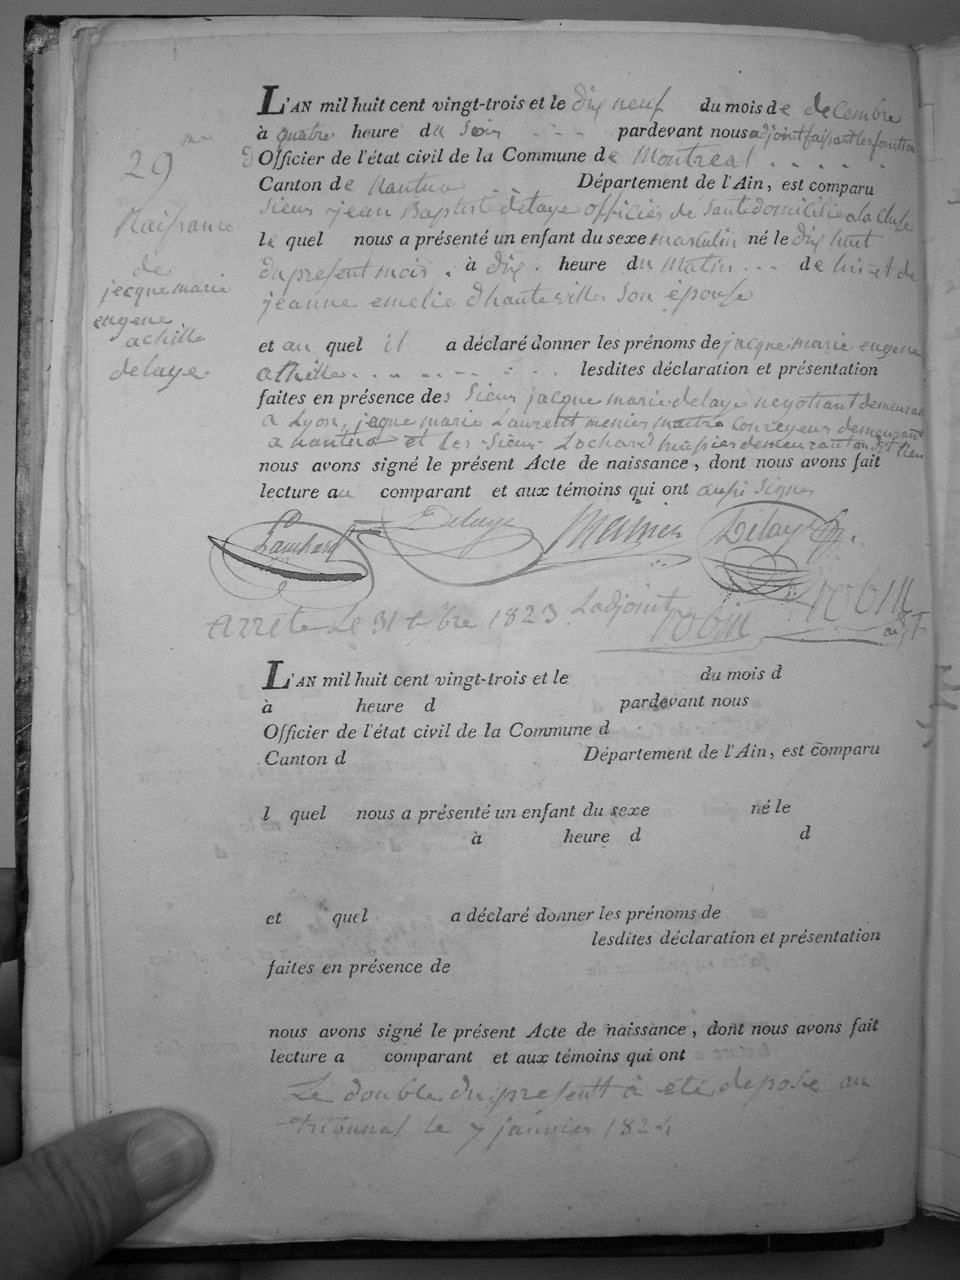 29me
Naissance
de
jecque marie
eugene
achille
delaye
L'AN mil huit cent vingt-trois et le dix neuf du mois de decembre
à quatre heure du Soir pardevant nous adjoint faisant les fonction
d'Officier de l'état civil de la Commune de Montreal
Canton de Nantua Département de l'Ain, est comparu
Sieur jean Baptist delaye officier de Santé domicilié a la Cluse
le quel nous a présenté un enfant du sexe masculin né le dix huit
du present mois, à dix heure du Matin de lui et de
jeanne emelie d'hauteville Son épouse
et au quel il a déclaré donner les prénoms de jacque marie eugene
athille lesdites déclaration et présentation
faites en présence des Sieur jacque marie delaye negotiant demeurant
a Lyon, jaque marie Laurent menier maitre Corroyeur demeurant
a nantua et le Sieur Lochard huissier demeurant au dit lieu
nous avons signé le présent Acte de naissance, dont nous avons fait
lecture au comparant et aux témoins qui ont aussi Signes
Lauchard Delaye Menier Delaye
Arrete Le 31 Xbre 1823 L'adjoint robin robin
adjt
L'AN mil huit cent vingt-trois et le du mois d
à heure d pardevant nous
Officier de l'état civil de la Commune d
Canton d Département de l'Ain, est comparu
l quel nous a présenté un enfant du sexe né le
à heure d d
et quel a déclaré donner les prénoms de
lesdites déclaration et présentation
faites en présence de
nous avons signé le présent Acte de naissance, dont nous avons fait
lecture a comparant et aux témoins qui ont
Le double du present à été deposé au
tribunal le 7 janvier 1824